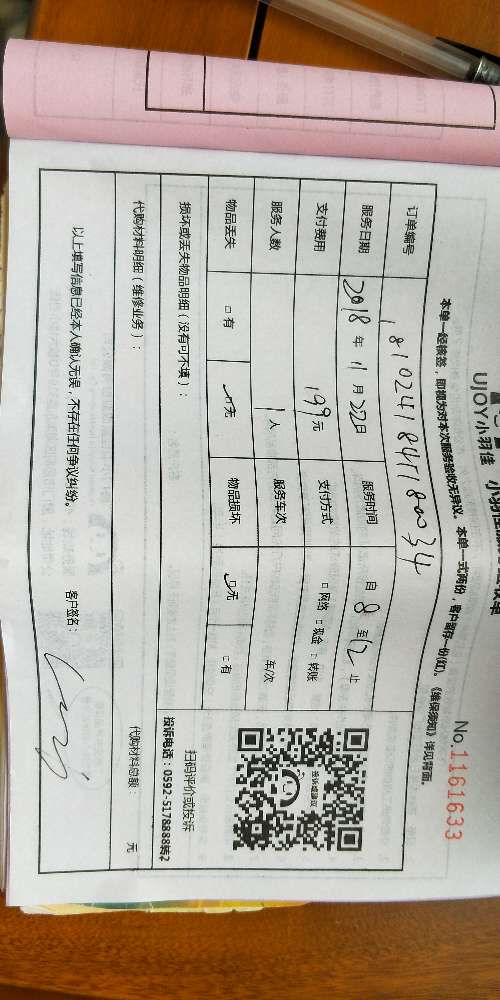 UJOY小羽佳
No.1161633
本单一经核签，即视为对本次服务验收无异议。本单一式两份，客户留存一份(红)。《维保须知》详见背面。
订单编号 1810241845180034
服务日期 2018年11月22日 服务时间 自8至12止
支付费用 199元 支付方式 □网络 □现金 □转账
服务人数 1人 服务车次 车/次
物品丢失 □有 □无 物品损坏 □无 □有
损坏或丢失物品明细（没有可不填）：
投诉或建议
扫码评价或投诉
投诉电话：0592-5178888转2
代购材料明细（维修业务）： 代购材料总额： 元
以上填写信息已经本人确认无误，不存在任何争议纠纷。 客户签名：